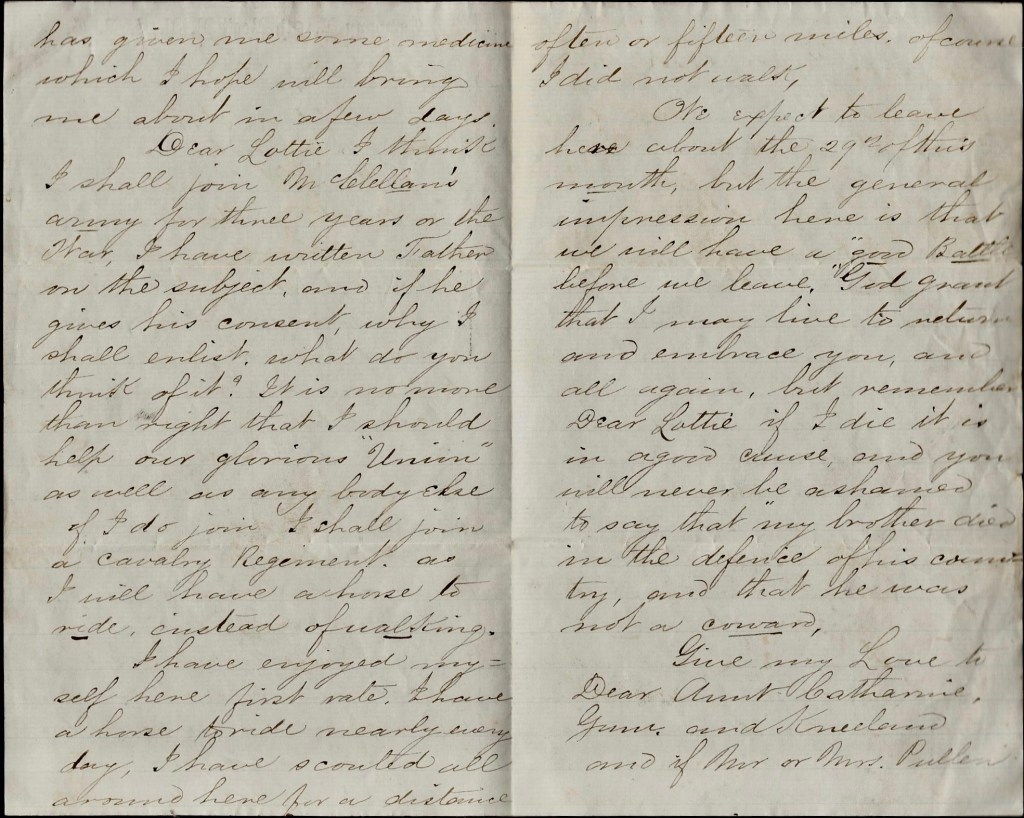 has given me some medicine
which I hope will bring
me about in a few days.
Dear Lottie I think
I shall join McClellan's
army for three years or the
War, I have written Father
on the subject, and if he
gives his consent, why I
shall enlist, what do you
think of it? It is no more
than right that I should
help our glorious "Union"
as well as any body else
if I do join I shall join
a cavalry Regiment. as
I will have a horse to
ride, instead of walking.
I have enjoyed my=
self here first rate. I have
a horse to ride nearly every
day, I have scouted all
around here for a distance
of ten or fifteen miles. of course
I did not walk,
We expect to leave
here about the 29th of this
month, but the general
impression here is that
we will have a "good Battle
before we leave." God grant
that I may live to return
and embrace you, and
all again, but remember
Dear Lottie if I die it is
in a good cause, and you
will never be ashamed
to say that "my brother died
in the defence of his coun=
try, and that he was
not a coward,
Give my Love to
Dear Aunt Catharine,
and Kneeland
and if Mr or Mrs. Pullen